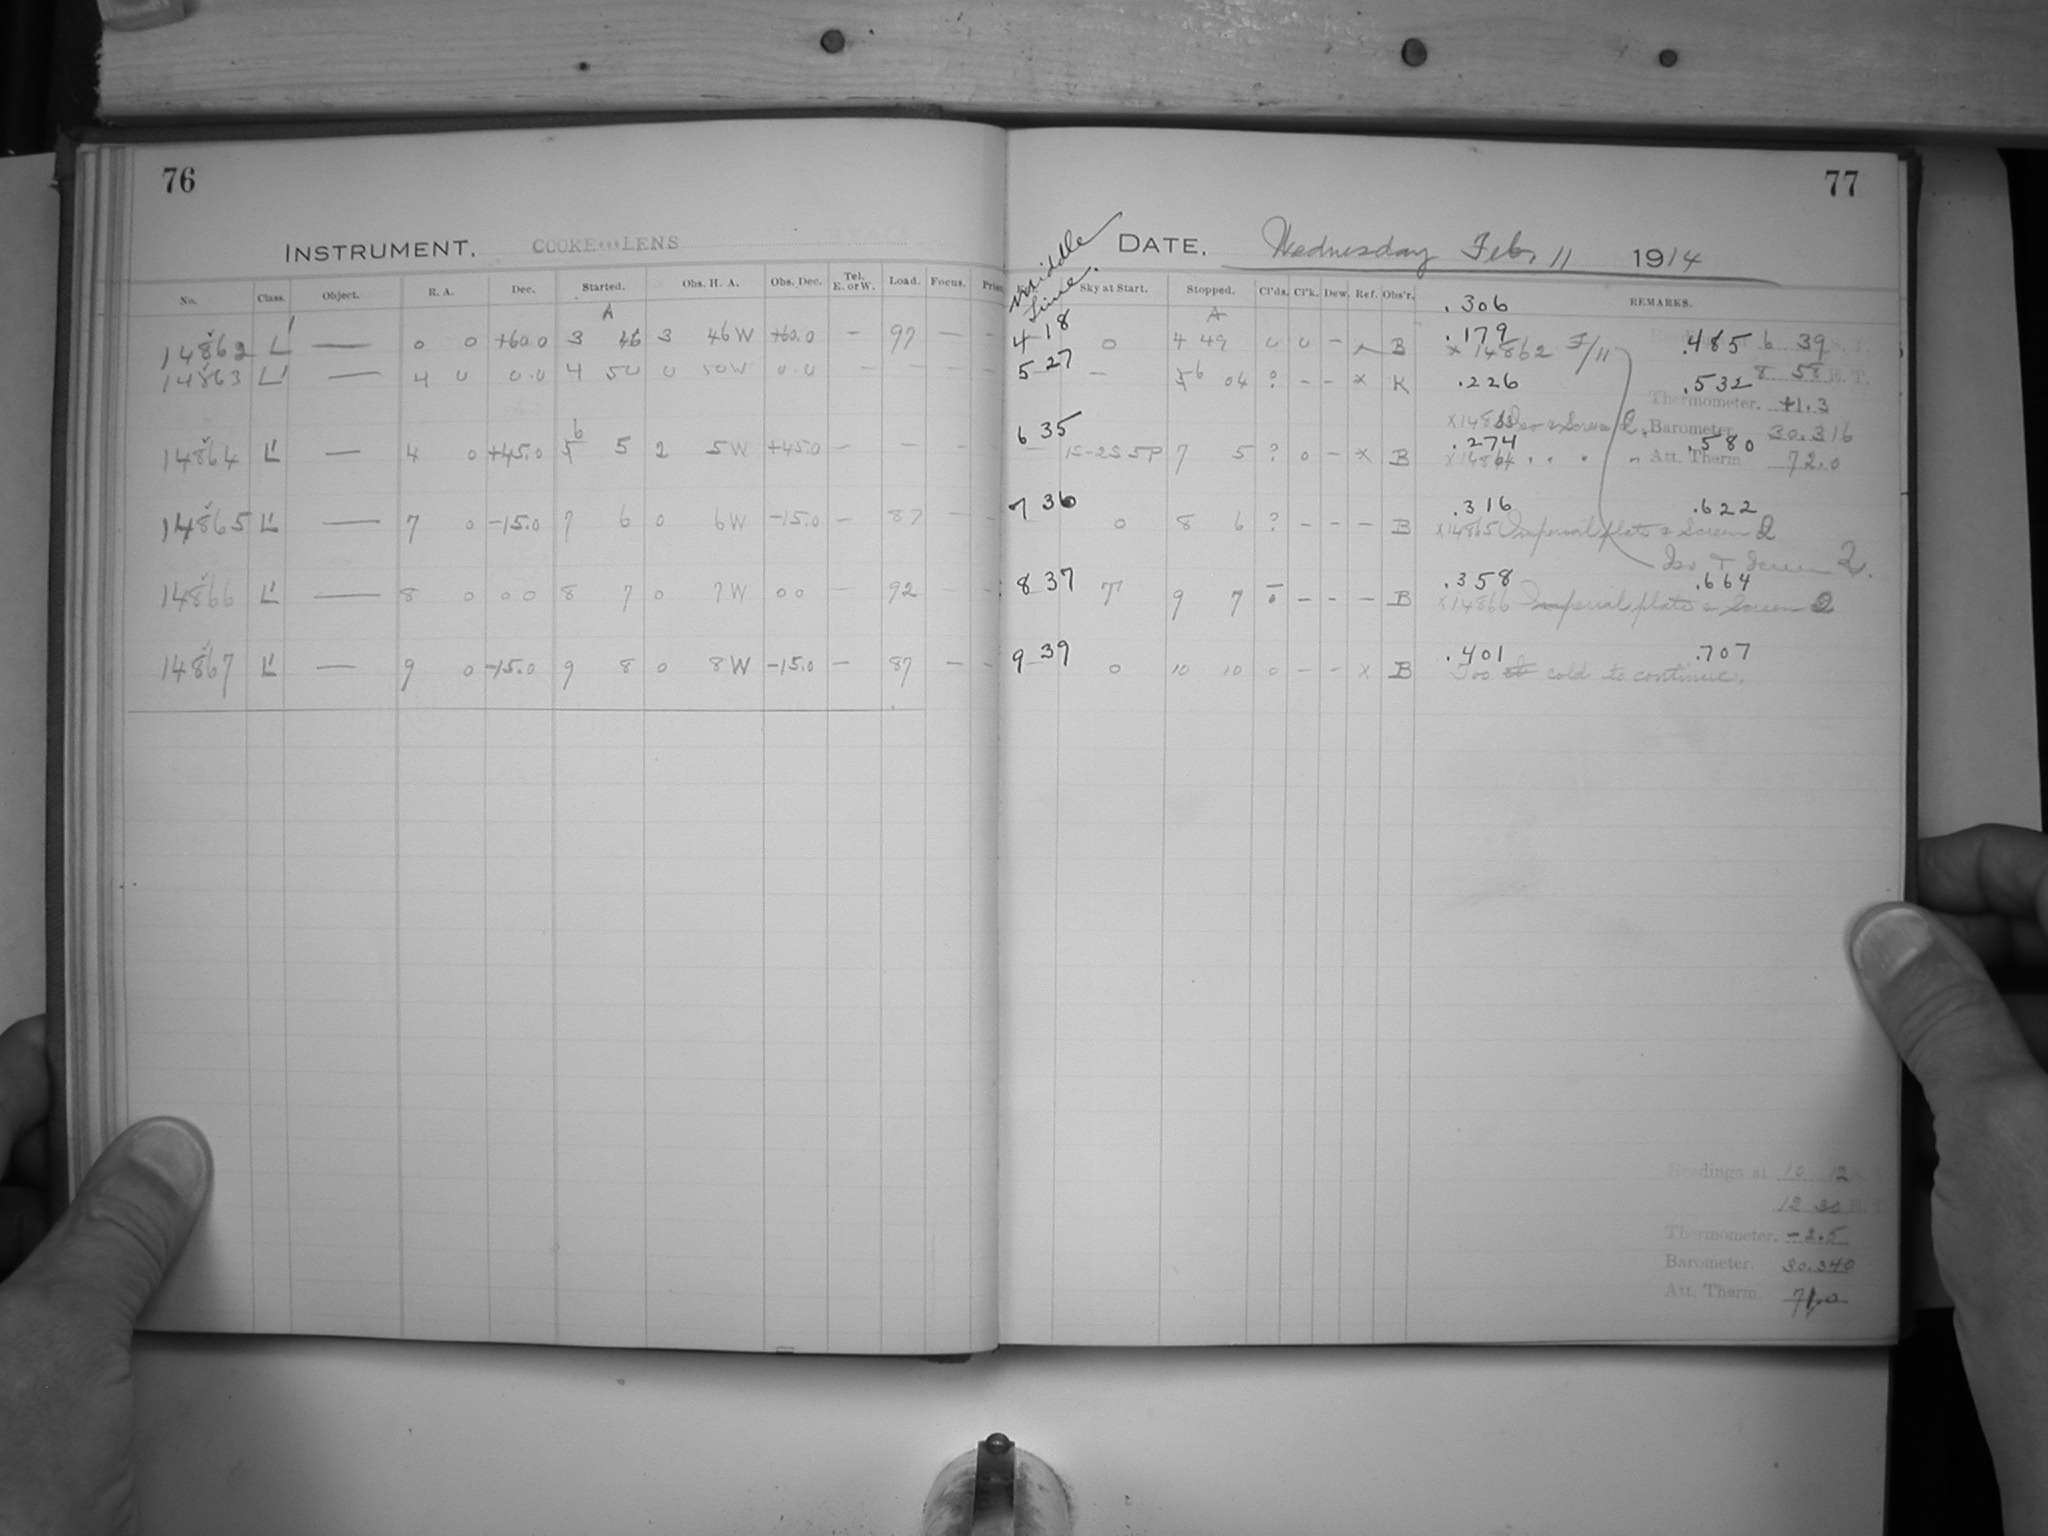 76
INSTRUMENT. COOKE LENS
No. Class. Object. R. A. Dec. Started. Obs. H. A. Obs. Dec. Tel. E. or W. Load. Focus.
A
14862 L' — 0 0 +60.0 3 46 3 46W +60.0 — 97 — —
14863 L' — 4 0 0.0 4 50 0 50W 0.0 — — — —
6
14864 L' — 4 0 +45.0 5 5 2 5W +45.0 — — —
14865 L' — 7 0 -15.0 7 6 0 6W -15.0 — 87 — —
14866 L' — 8 0 0 0 8 7 0 7W 0 0 — 92 — —
14867 L' — 9 0 -15.0 9 8 0 8W -15.0 — 87 — —
77
Middle Time.
DATE. Wednesday Feb. 11 1914
Sky at Start. Stopped. Cl'ds. Cl'k. Dew. Ref. Obs'r. REMARKS.
.306
A
4 18 0 4 49 0 0 — B .179 .485 6 39
x 14862 F/11
8 58 E. T.
5 27 — 5 6 04 ? — — x K .226 .532
Thermometer. +1.3
x14863 Iso & Screen 2. Barometer 30.316
6 35 1S-2S 5P 7 5 ? 0 — x B .274 .580
x14864 " " " " Att. Therm 72.0
7 36 0 8 6 ? — — — B .316 .622
x14865 Imperial plate & Screen 2
Iso + Screen 2.
8 37 7 9 7 — — — B .358 .664
x14866 Imperial plate & Screen 2
9 39 0 10 10 0 — — x B .401 .707
Too cold to continue.
Readings at 10 12
12 30 E. T.
Thermometer. -2.5
Barometer. 30.340
Att. Therm 71.0